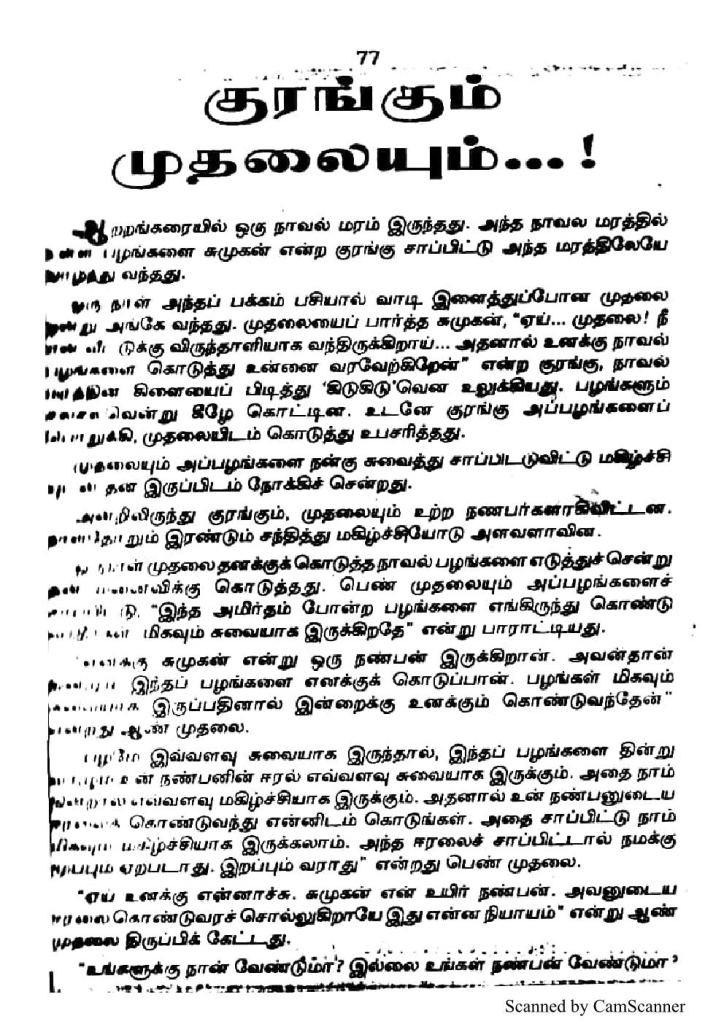 77
குரங்கும்
முதலையும்...!
ஆற்றங்கரையில் ஒரு நாவல் மரம் இருந்தது. அந்த நாவல மரத்தில்
பழங்களை சுமுகன் என்ற குரங்கு சாப்பிட்டு அந்த மரத்திலேயே
வாழ்ந்து வந்தது.
ஒரு நாள் அந்தப் பக்கம் பசியால் வாடி இளைத்துப்போன முதலை
ஒன்று அங்கே வந்தது. முதலையைப் பார்த்த சுமுகன், "ஏய்... முதலை! நீ
என் வீட்டுக்கு விருந்தாளியாக வந்திருக்கிறாய்... அதனால் உனக்கு நாவல்
பழங்களை கொடுத்து உன்னை வரவேற்கிறேன்" என்ற குரங்கு, நாவல்
மரத்தின் கிளையைப் பிடித்து 'கிடுகிடு'வென உலுக்கியது. பழங்களும்
சலசலவென்று கீழே கொட்டின. உடனே குரங்கு அப்பழங்களைப்
பொறுக்கி, முதலையிடம் கொடுத்து உபசரித்தது.
முதலையும் அப்பழங்களை நன்கு சுவைத்து சாப்பிட்டுவிட்டு மகிழ்ச்சி
யுடன் தன இருப்பிடம் நோக்கிச் சென்றது.
அன்றிலிருந்து குரங்கும், முதலையும் உற்ற நண்பர்களாகிவிட்டன.
நாள்தோறும் இரண்டும் சந்தித்து மகிழ்ச்சியோடு அளவளாவின.
ஒரு நாள் முதலை தனக்குக் கொடுத்த நாவல் பழங்களை எடுத்துச் சென்று
தன் மனைவிக்கு கொடுத்தது. பெண் முதலையும் அப்பழங்களைச்
சாப்பிட்டு, "இந்த அமிர்தம் போன்ற பழங்களை எங்கிருந்து கொண்டு
வந்தீர்கள் மிகவும் சுவையாக இருக்கிறதே" என்று பாராட்டியது.
"எனக்கு சுமுகன் என்று ஒரு நண்பன் இருக்கிறான். அவன்தான்
இந்தப் பழங்களை எனக்குக் கொடுப்பான். பழங்கள் மிகவும்
சுவையாக இருப்பதினால் இன்றைக்கு உனக்கும் கொண்டுவந்தேன்"
என்றது ஆண் முதலை.
பழமே இவ்வளவு சுவையாக இருந்தால், இந்தப் பழங்களை தின்று
வாழும் உன் நண்பனின் ஈரல் எவ்வளவு சுவையாக இருக்கும். அதை நாம்
தின்றால் எவ்வளவு மகிழ்ச்சியாக இருக்கும். அதனால் உன் நண்பனுடைய
ஈரலைக் கொண்டுவந்து என்னிடம் கொடுங்கள். அதை சாப்பிட்டு நாம்
மிகவும் மகிழ்ச்சியாக இருக்கலாம். அந்த ஈரலைச் சாப்பிட்டால் நமக்கு
மூப்பும் ஏறபடாது. இறப்பும் வராது" என்றது பெண் முதலை.
"ஏய் உனக்கு என்னாச்சு. சுமுகன் என் உயிர் நண்பன். அவனுடைய
ஈரலை கொண்டுவரச் சொல்லுகிறாயே இது என்ன நியாயம்" என்று ஆண்
முதலை திருப்பிக் கேட்டது.
"உங்களுக்கு நான் வேண்டுமா? இல்லை உங்கள் நண்பன் வேண்டுமா?
Scanned by CamScanner